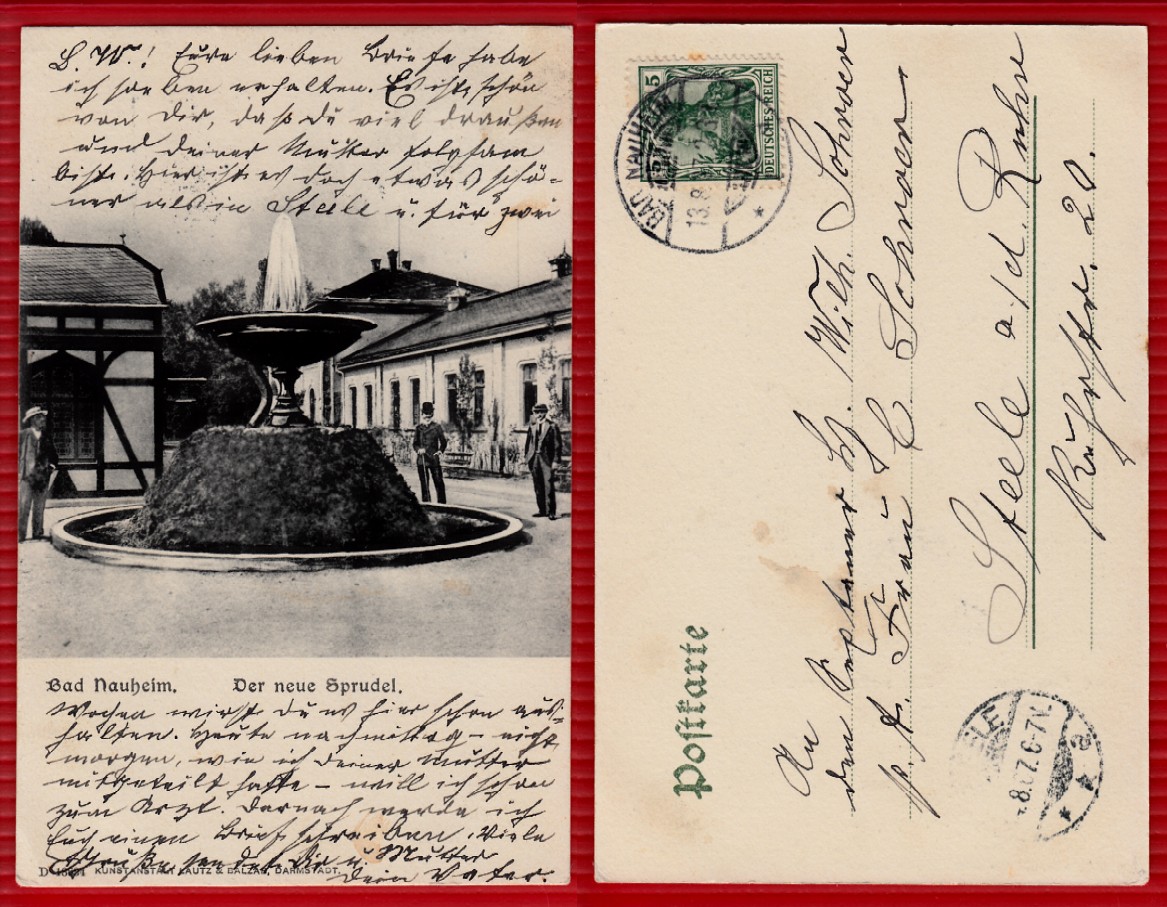 L. W.! Eure lieben Briefe habe
ich soeben erhalten. Es ist schön
von Dir, daß Du viel draußen
und Deiner Mutter folgsam
bist. Hier ist es doch etwas schö-
ner als in Steele u. für zwei
Bad Nauheim. Der neue Sprudel.
Wochen wirst Du es hier schon aus-
halten. Heute nachmittag – nicht
morgen, wie ich Deiner Mutter
mitgeteilt hatte – will ich schon
zum Arzt. Darnach werde ich
Euch einen Brief schreiben. Viele
Grüße sendet Dir u. Mutter
Dein Vater.
KUNSTANSTALT LAUTZ & BALZAR, DARMSTADT.
5
DEUTSCHES REICH
BAD NAUHEIM
13.8
Postkarte
An
den Sextaner H. Wilh. Schroer
p. A. Frau C Schroer
Steele a/d. Ruhr
Ruhrstr. 20.
8.07.6-7N.